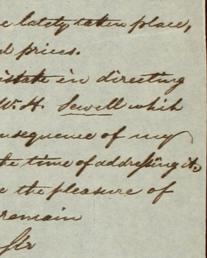 lately taken place,
prices.
mistake in directing
W. H. Sewell which
consequence of my
the time of addressing it,
the pleasure of
remain
Sir